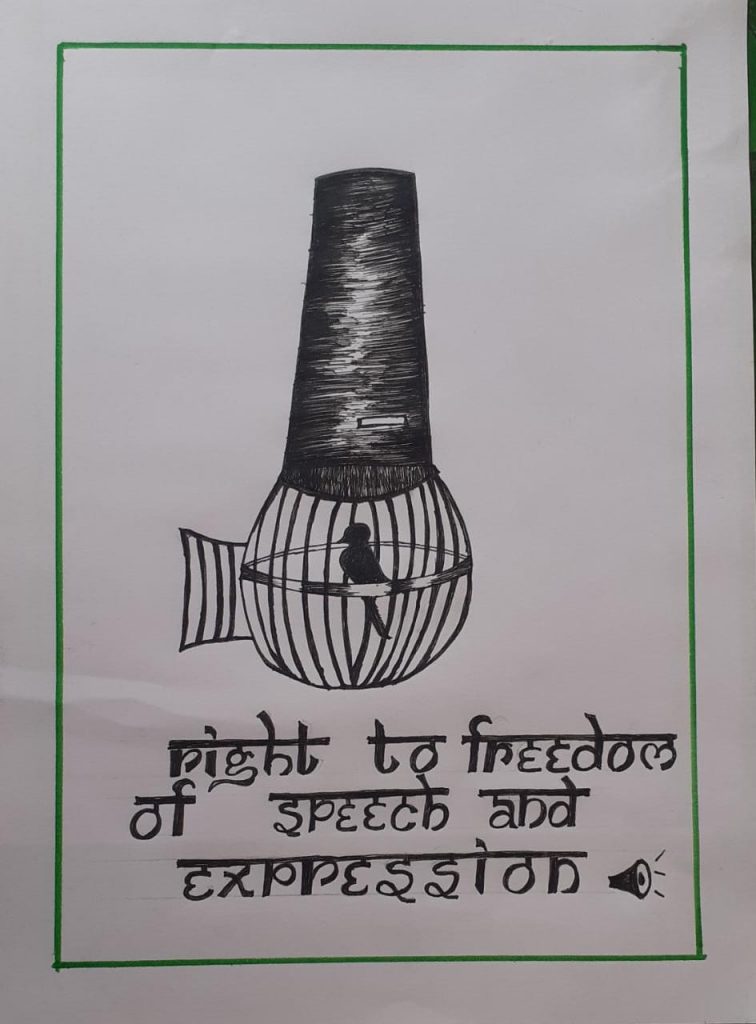 right to freedom
of speech and
expression